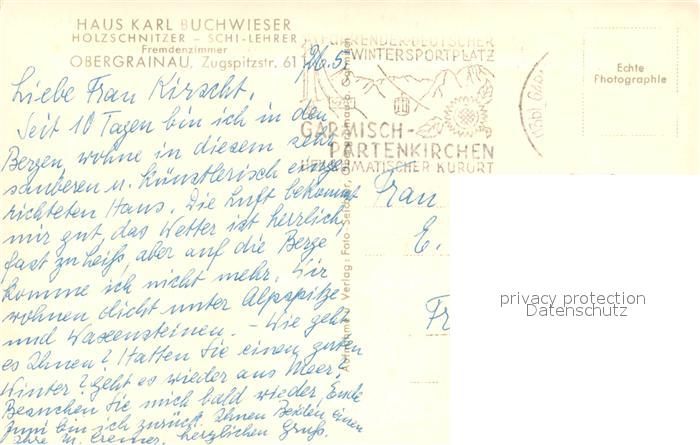 HAUS KARL BUCHWIESER
HOLZSCHNITZER - SCHI-LEHRER
Fremdenzimmer
OBERGRAINAU, Zugspitzstr. 61
26.5.
FÜHRENDER DEUTSCHER
WINTERSPORTPLATZ
GARMISCH-
PARTENKIRCHEN
HEILKLIMATISCHER KURORT
Echte
Photographie
Liebe Frau Kirscht.
Seit 10 Tagen bin ich in den
Bergen, wohne in diesem sehr
sauberen u. künstlerisch einge-
richteten Haus. Die Luft bekommt
mir gut, das Wetter ist herrlich,
fast zu heiß, aber auf die Berge
komme ich nicht mehr. Wir
wohnen dicht unter Alpspitze
und Waxensteinen. - Wie geht
es Ihnen? Hatten Sie einen guten
Winter? Geht es wieder ans Meer?
Besuchen Sie mich bald wieder, Ende
Juni bin ich zurück. Ihnen Beiden einen
herzlichen Gruß.
Frau
E.
Fr
Aufnahme u. Verlag: Foto-
privacy protection
Datenschutz